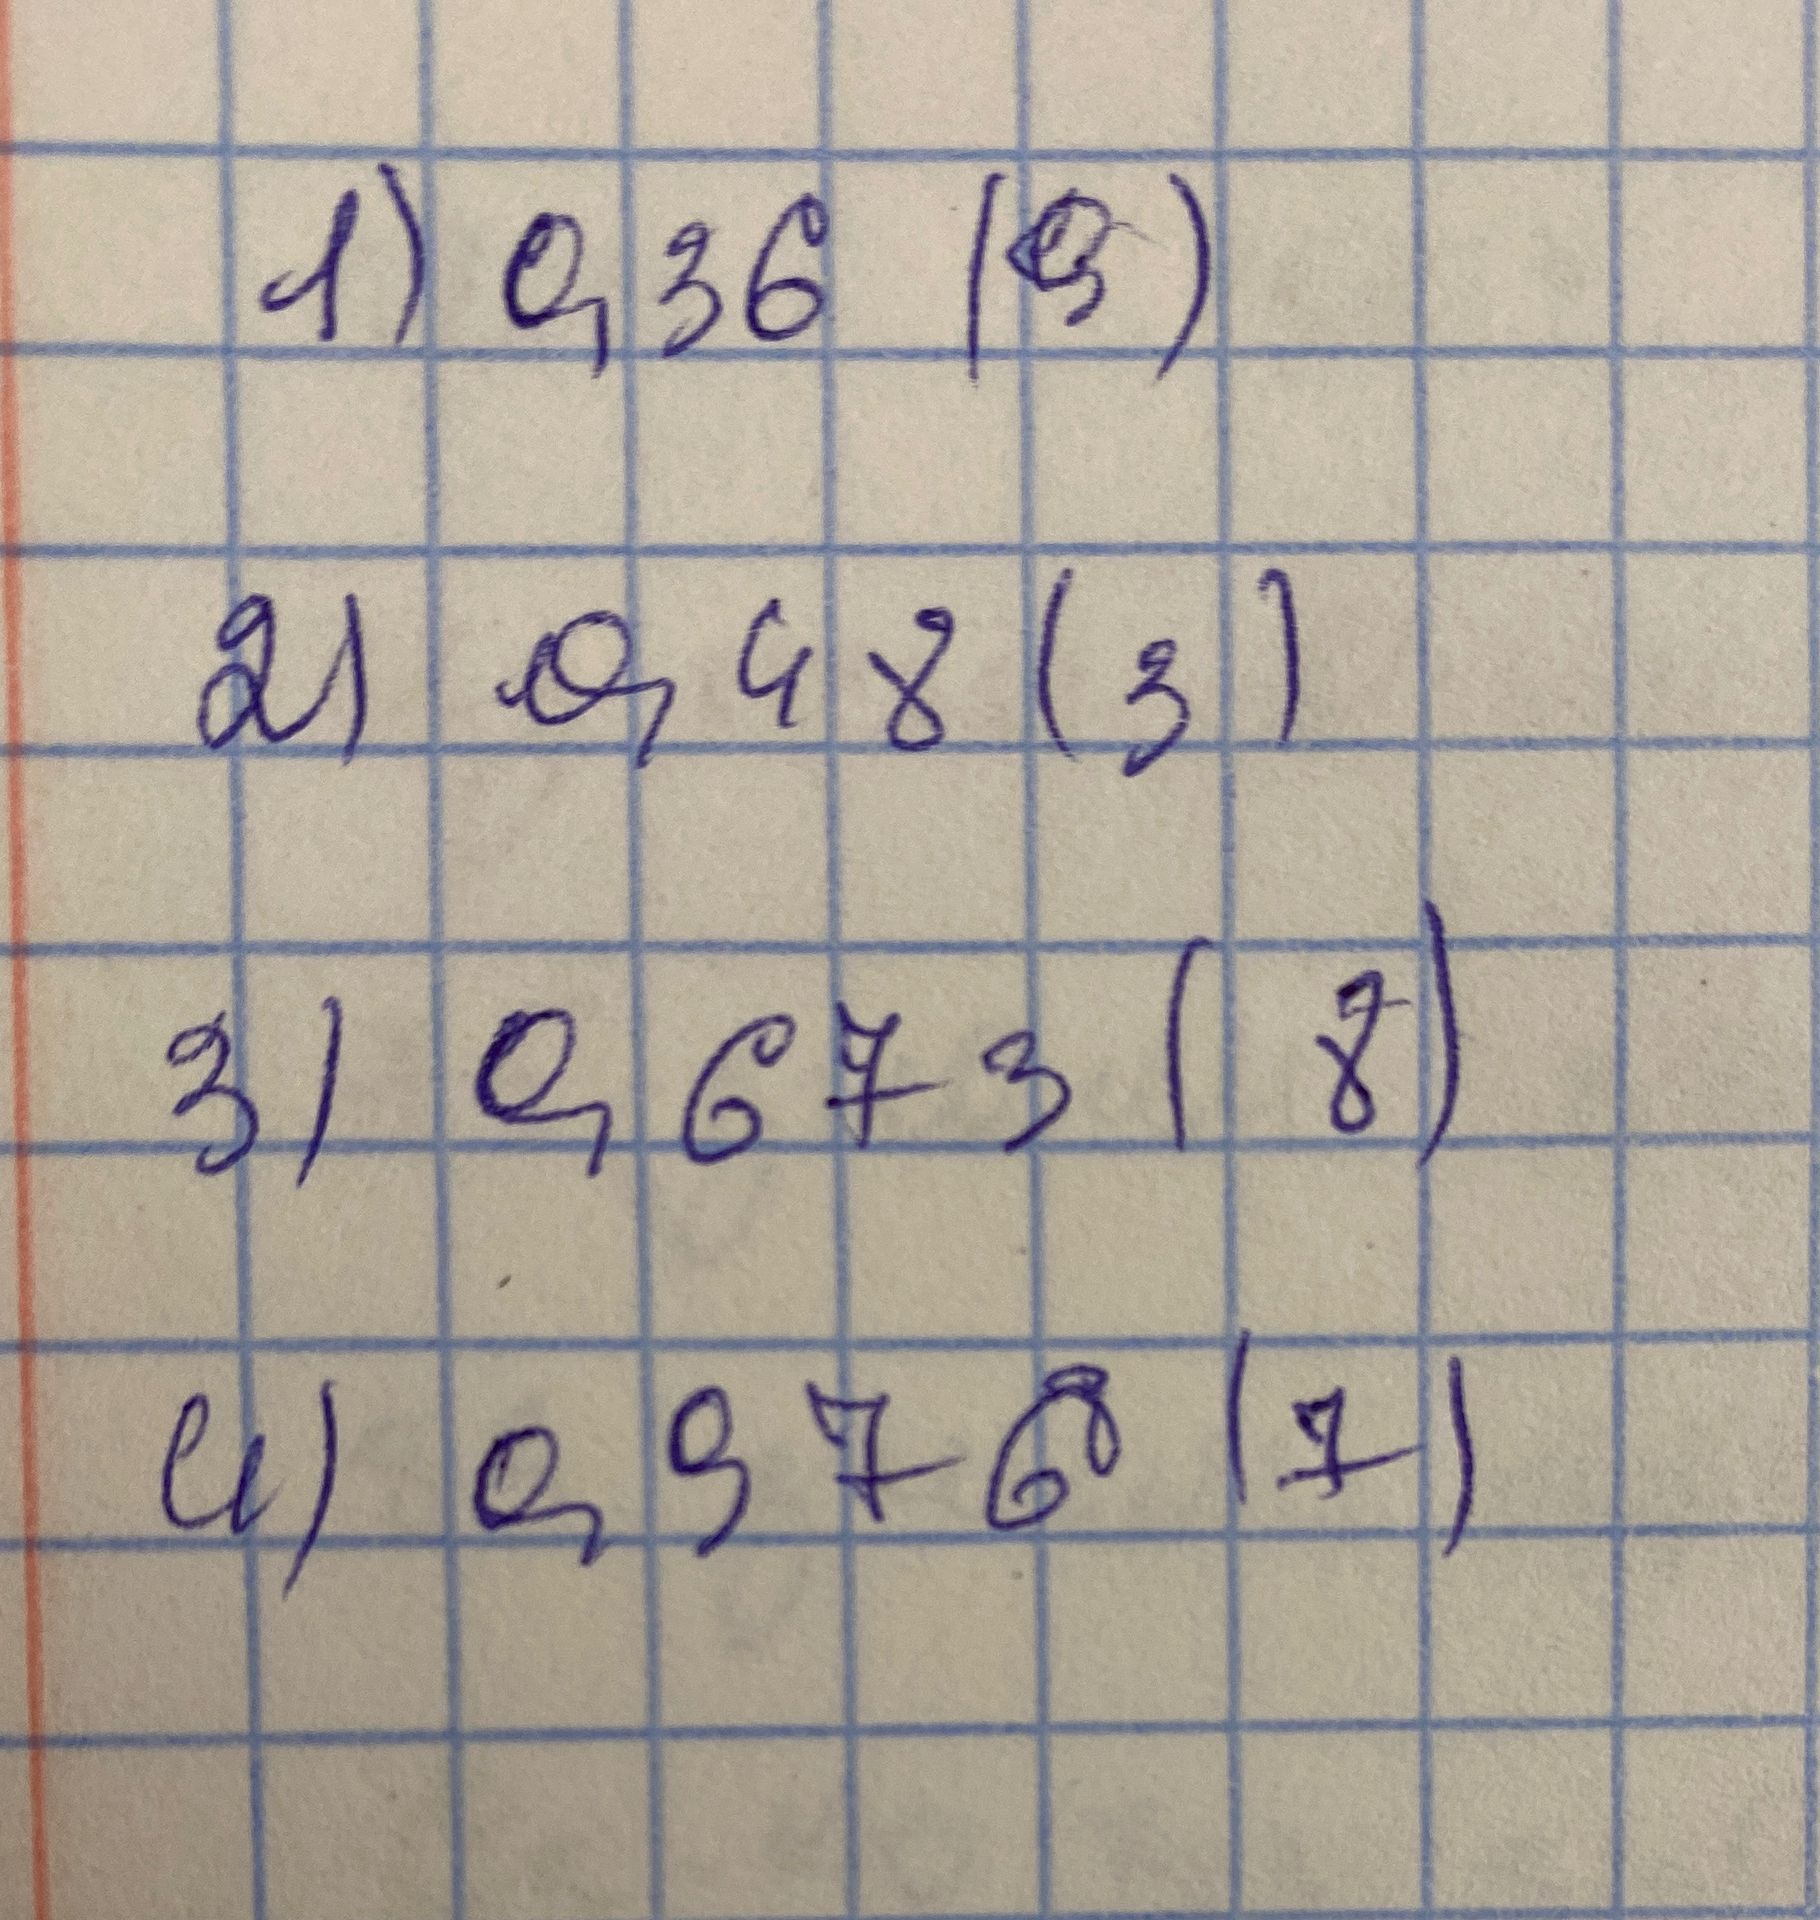 1) 0,36 (9)
2) 0,48(3)
3) 0,673 (8)
4) 0,976 (7)